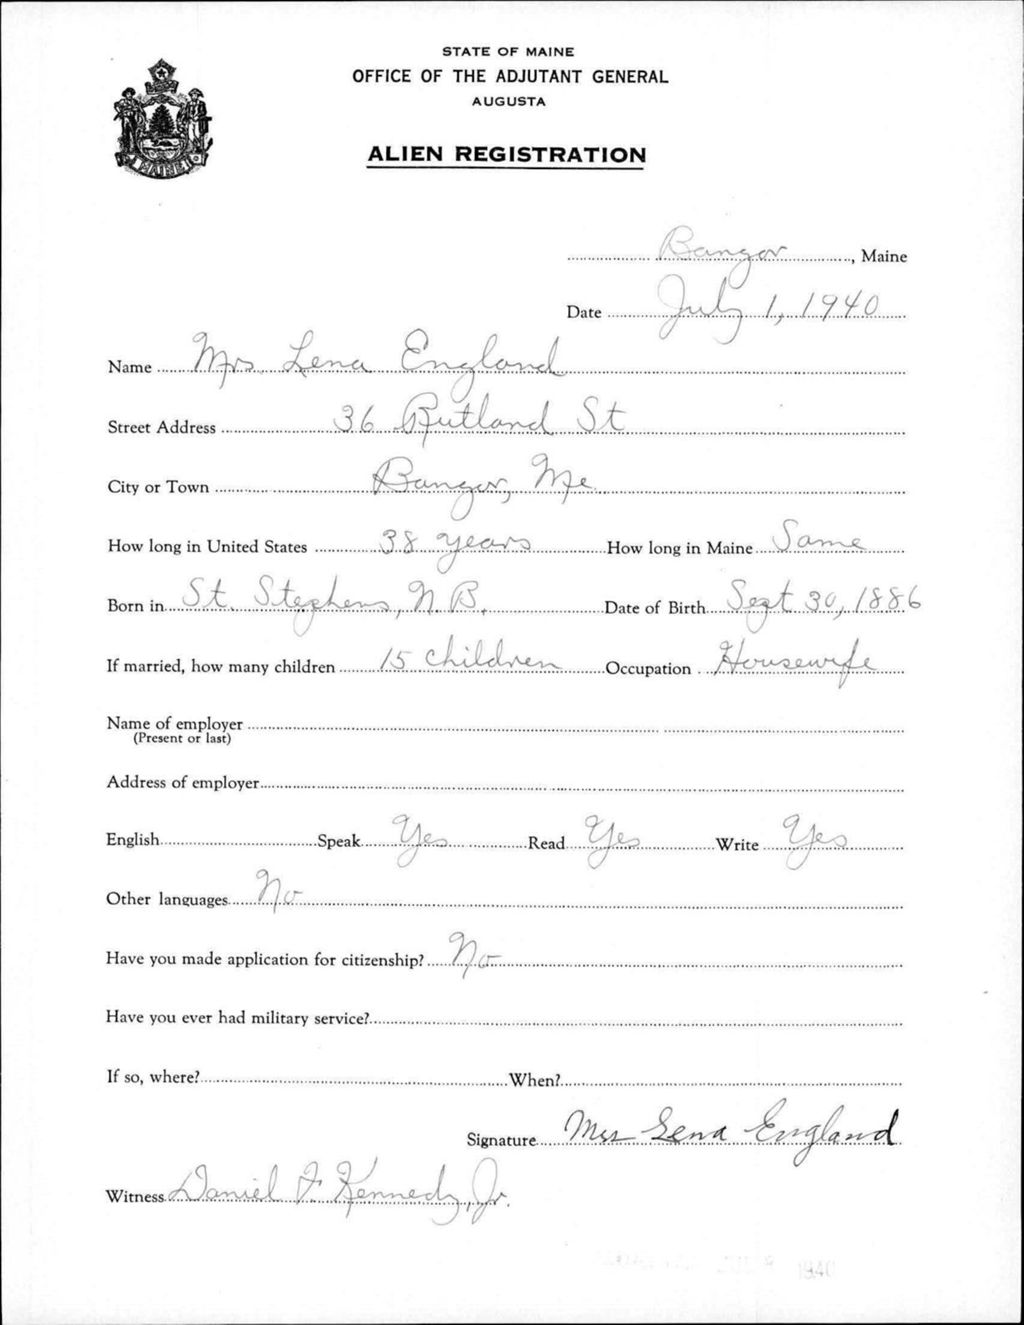 STATE OF MAINE
OFFICE OF THE ADJUTANT GENERAL
AUGUSTA
ALIEN REGISTRATION
MAINE
Bangor, Maine
Date July 1, 1940
Name Mrs. Lena England
Street Address 36 Rutland St
City or Town Bangor, Me.
How long in United States 38 years How long in Maine Same
Born in St. Stephens, N.B. Date of Birth Sept 30, 1886
If married, how many children 15 children Occupation Housewife
Name of employer
(Present or last)
Address of employer
English Speak Yes Read Yes Write Yes
Other languages No
Have you made application for citizenship? No
Have you ever had military service?
If so, where? When?
Signature Mrs Lena England
Witness Daniel F. Kennedy, Jr.
1940